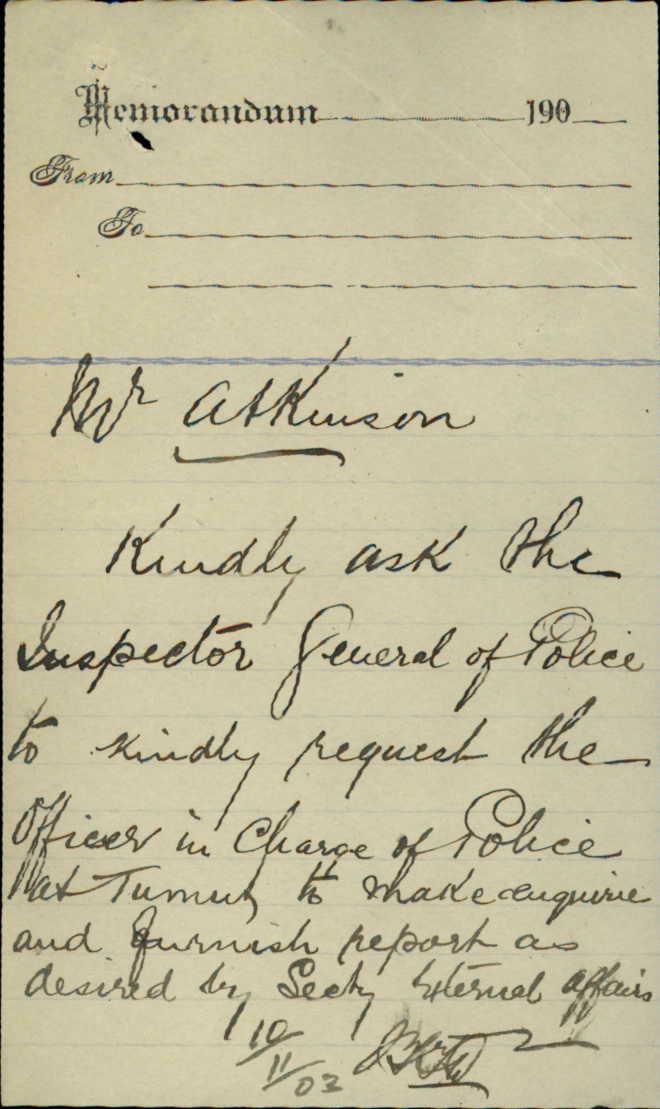 Memorandum 190
From
To
Mr Atkinson
Kindly ask the
Inspector General of Police
to kindly request the
Officer in Charge of Police
at Tumut to make enquirie
and furnish report as
desired by Secty External Affairs
10/11/02